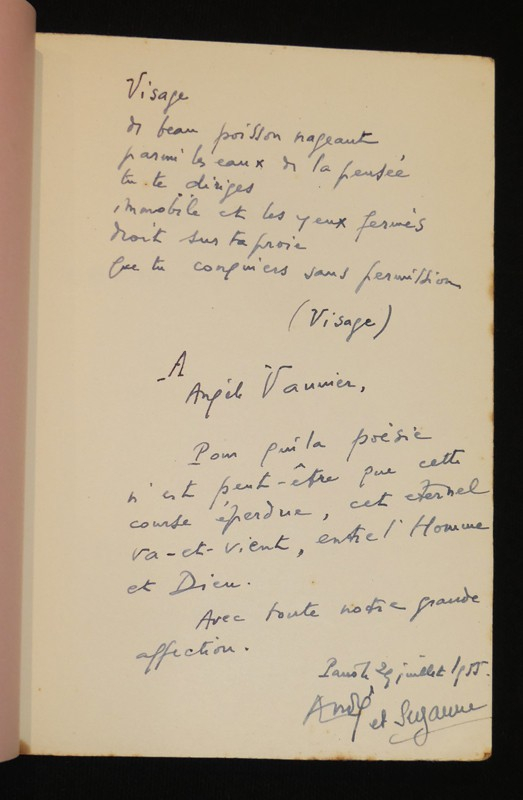 Visage
de beau poisson nageant
parmi les eaux de la pensée
tu te diriges
immobile et les yeux fermés
droit sur ta proie
que tu conquiers sans permission
(Visage)
A
Angèle Vannier,
Pour qui la poésie
n'est peut-être que cette
course éperdue, cet eternel
va-et-vient, entre l'Homme
et Dieu.
Avec toute notre grande
affection.
29 juillet 1955.
André et Suzanne